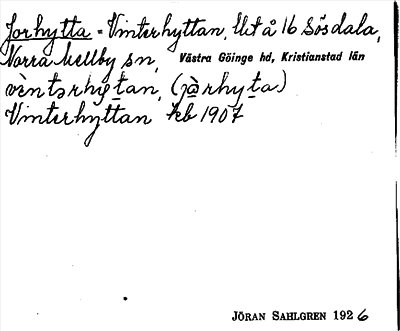 Jorhytta = Vinterhyttan, lht å 16 Sösdala,
Norra Mellby sn, Västra Göinge hd, Kristianstad län
vèntərhytan, (jòrhyta)
Vinterhyttan kb 1907
JÖRAN SAHLGREN 1926